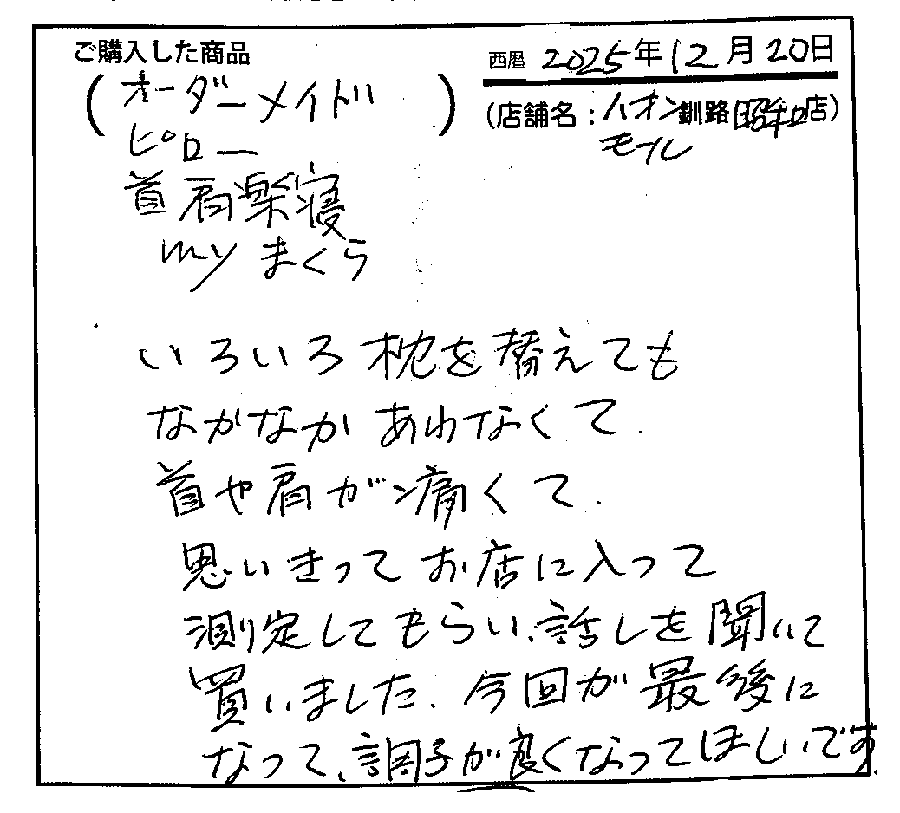 ご購入した商品
西暦 2025年12月20日
(オーダーメイド
ピロー
首肩楽寝
myまくら)
(店舗名:イオン釧路昭和店)
モール
いろいろ枕を替えても
なかなかあわなくて.
首や肩が痛くて.
思いきってお店に入って
測定してもらい、話しを聞いて
買いました. 今回が最後に
なって、調子が良くなってほしいです.